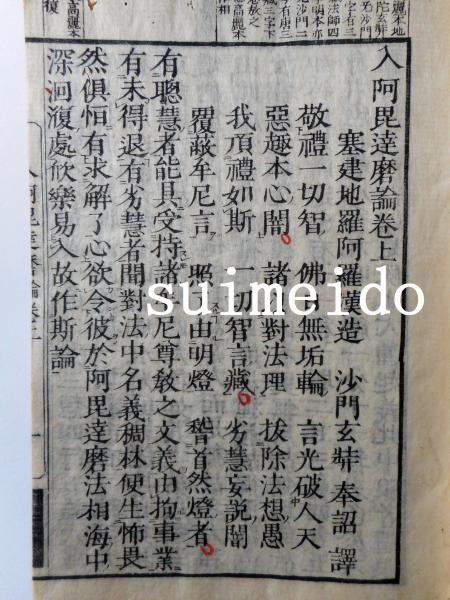 入阿毘達磨論卷上
塞建地羅阿羅漢造 沙門玄奘奉詔譯
敬禮一切智 佛日無垢輪 言光破人天
惡趣本心闇 諸對法理 拔除法想愚
我頂禮如斯 一切智言藏 劣慧妄說闇
覆蔽牟尼言 照由明燈 稽首然燈者
有聰慧者能具受持諸尼尊教之文義由拘事業
有未得退有劣慧者聞對法中名義稠林便生怖畏
然俱恒有求解了心欲令彼於阿毘達磨法相海中
深洄澓處欣樂易入故作斯論
suimeido